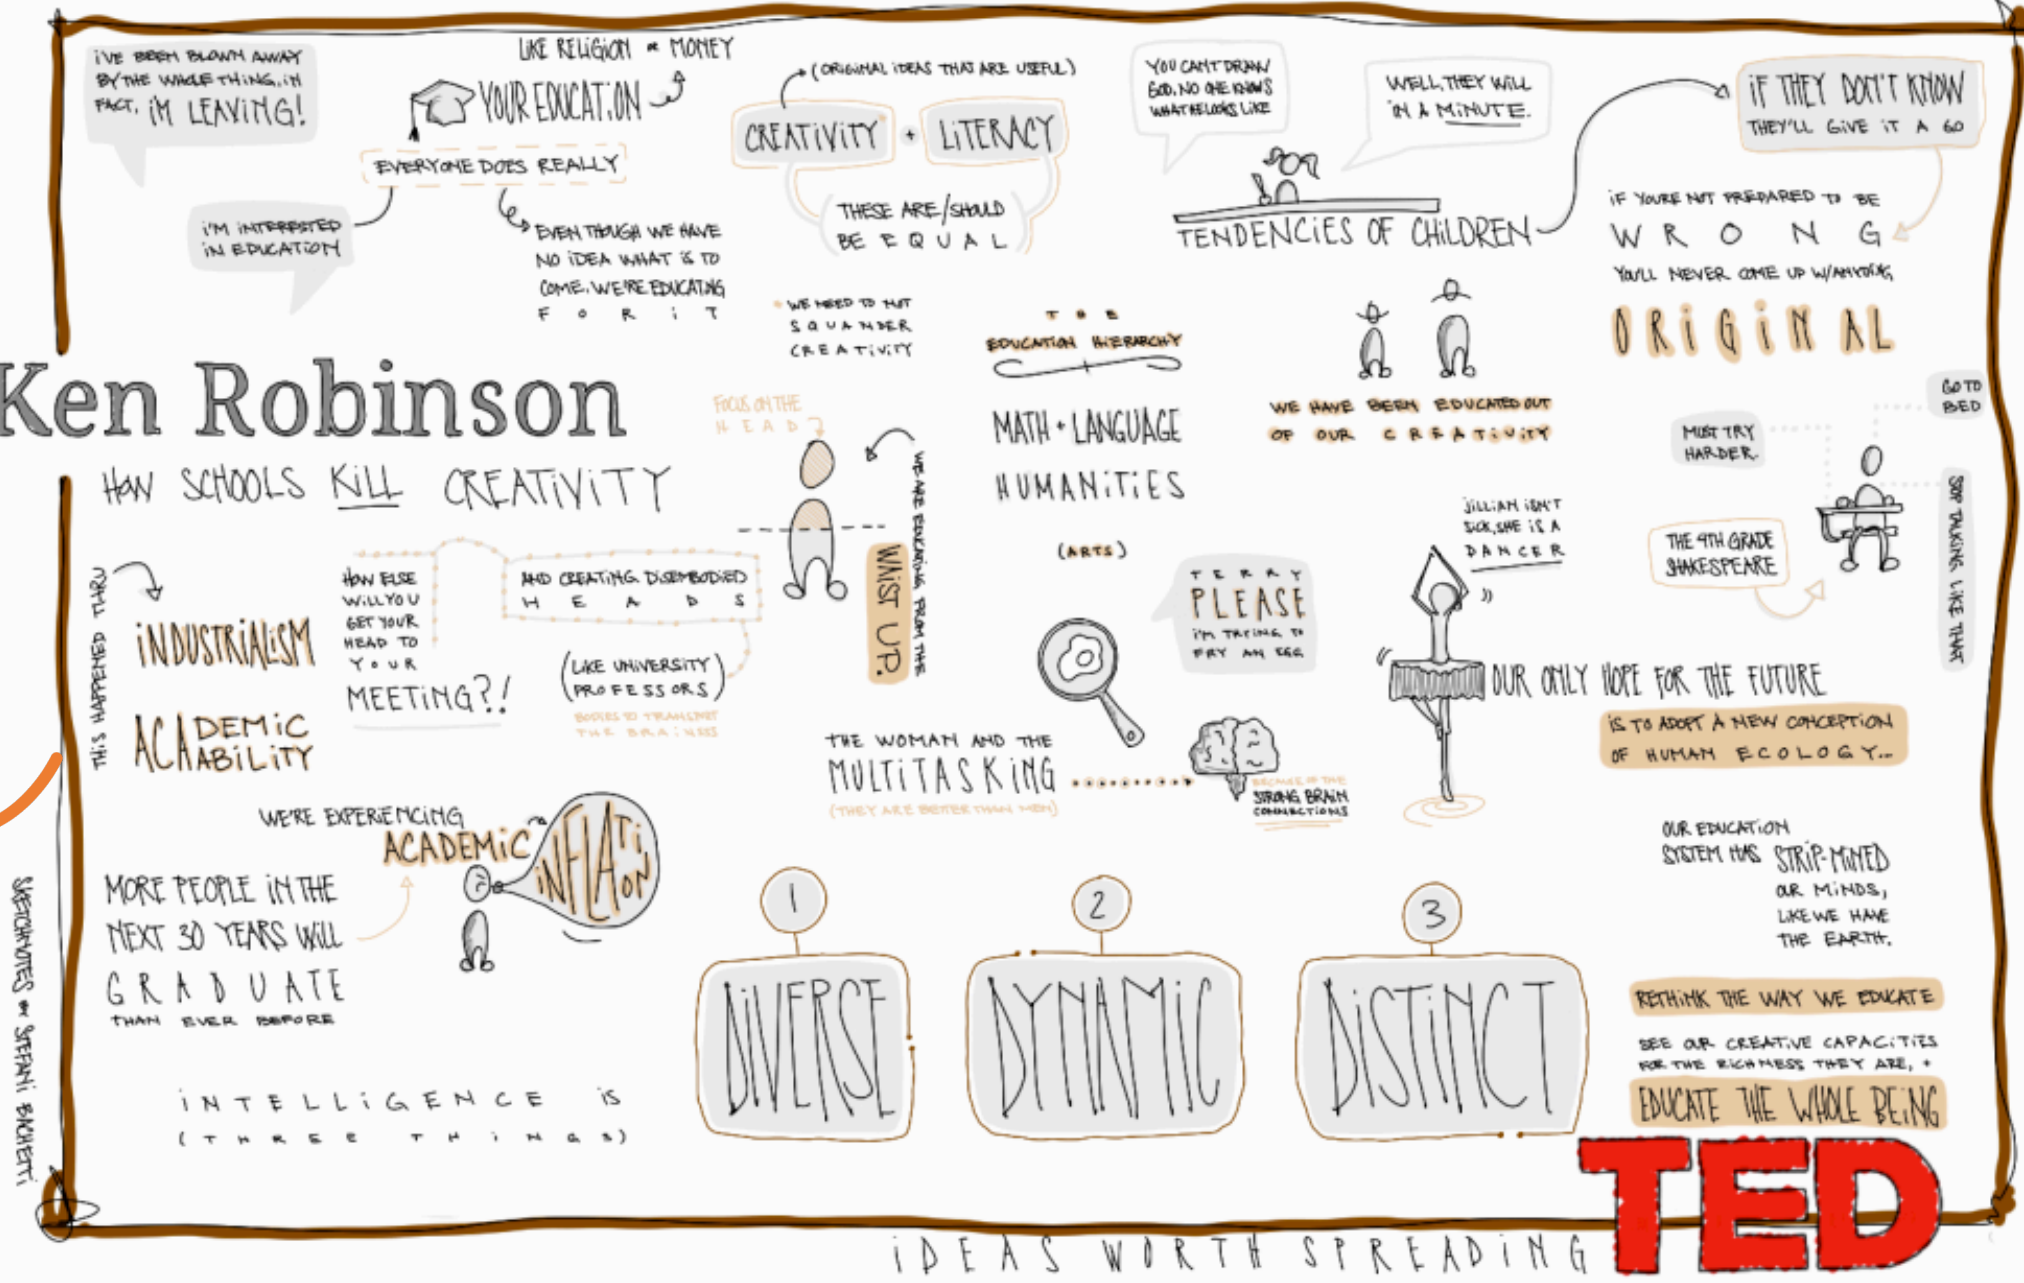 I'VE BEEN BLOWN AWAY
BY THE WHOLE THING. IN
FACT, I'M LEAVING!
LIKE RELIGION OR MONEY
YOUR EDUCATION
EVERYONE DOES REALLY
I'M INTERESTED
IN EDUCATION
EVEN THOUGH WE HAVE
NO IDEA WHAT IS TO
COME, WE'RE EDUCATING
FOR IT
(ORIGINAL IDEAS THAT ARE USEFUL)
CREATIVITY* + LITERACY
(THESE ARE/SHOULD
BE EQUAL)
* WE NEED TO NOT
SQUANDER
CREATIVITY
YOU CAN'T DRAW
GOD, NO ONE KNOWS
WHAT HE LOOKS LIKE
WELL, THEY WILL
IN A MINUTE.
TENDENCIES OF CHILDREN
IF THEY DON'T KNOW
THEY'LL GIVE IT A GO
IF YOU'RE NOT PREPARED TO BE
WRONG
YOU'LL NEVER COME UP W/ANYTHING
ORIGINAL
Ken Robinson
HOW SCHOOLS KILL CREATIVITY
FOCUS ON THE
HEAD
WE ARE EDUCATING FROM THE
WAIST UP.
THE
EDUCATION HIERARCHY
MATH + LANGUAGE
HUMANITIES
(ARTS)
WE HAVE BEEN EDUCATED OUT
OF OUR CREATIVITY
GO TO
BED
MUST TRY
HARDER.
STOP TALKING LIKE THAT
THE 9TH GRADE
SHAKESPEARE
JILLIAN ISN'T
SICK, SHE IS A
DANCER
THIS HAPPENED THRU
INDUSTRIALISM
ACADEMIC
ABILITY
HOW ELSE
WILL YOU
GET YOUR
HEAD TO
YOUR
MEETING?!
AND CREATING DISEMBODIED
HEADS
(LIKE UNIVERSITY
PROFESSORS)
BODIES TO TRANSPORT
THE BRAINESS
TERRY
PLEASE
I'M TRYING TO
FRY AN EGG
THE WOMAN AND THE
MULTITASKING
(THEY ARE BETTER THAN MEN)
BECAUSE OF THE
STRONG BRAIN
CONNECTIONS
OUR ONLY HOPE FOR THE FUTURE
IS TO ADOPT A NEW CONCEPTION
OF HUMAN ECOLOGY...
WE'RE EXPERIENCING
ACADEMIC
INFLATION
MORE PEOPLE IN THE
NEXT 30 YEARS WILL
GRADUATE
THAN EVER BEFORE
OUR EDUCATION
SYSTEM HAS STRIP-MINED
OUR MINDS,
LIKE WE HAVE
THE EARTH.
INTELLIGENCE IS
(THREE THINGS)
1
DIVERSE
2
DYNAMIC
3
DISTINCT
RETHINK THE WAY WE EDUCATE
SEE OUR CREATIVE CAPACITIES
FOR THE RICHNESS THEY ARE, +
EDUCATE THE WHOLE BEING
SKETCHNOTES BY STEFANI BACHETTI
IDEAS WORTH SPREADING
TED